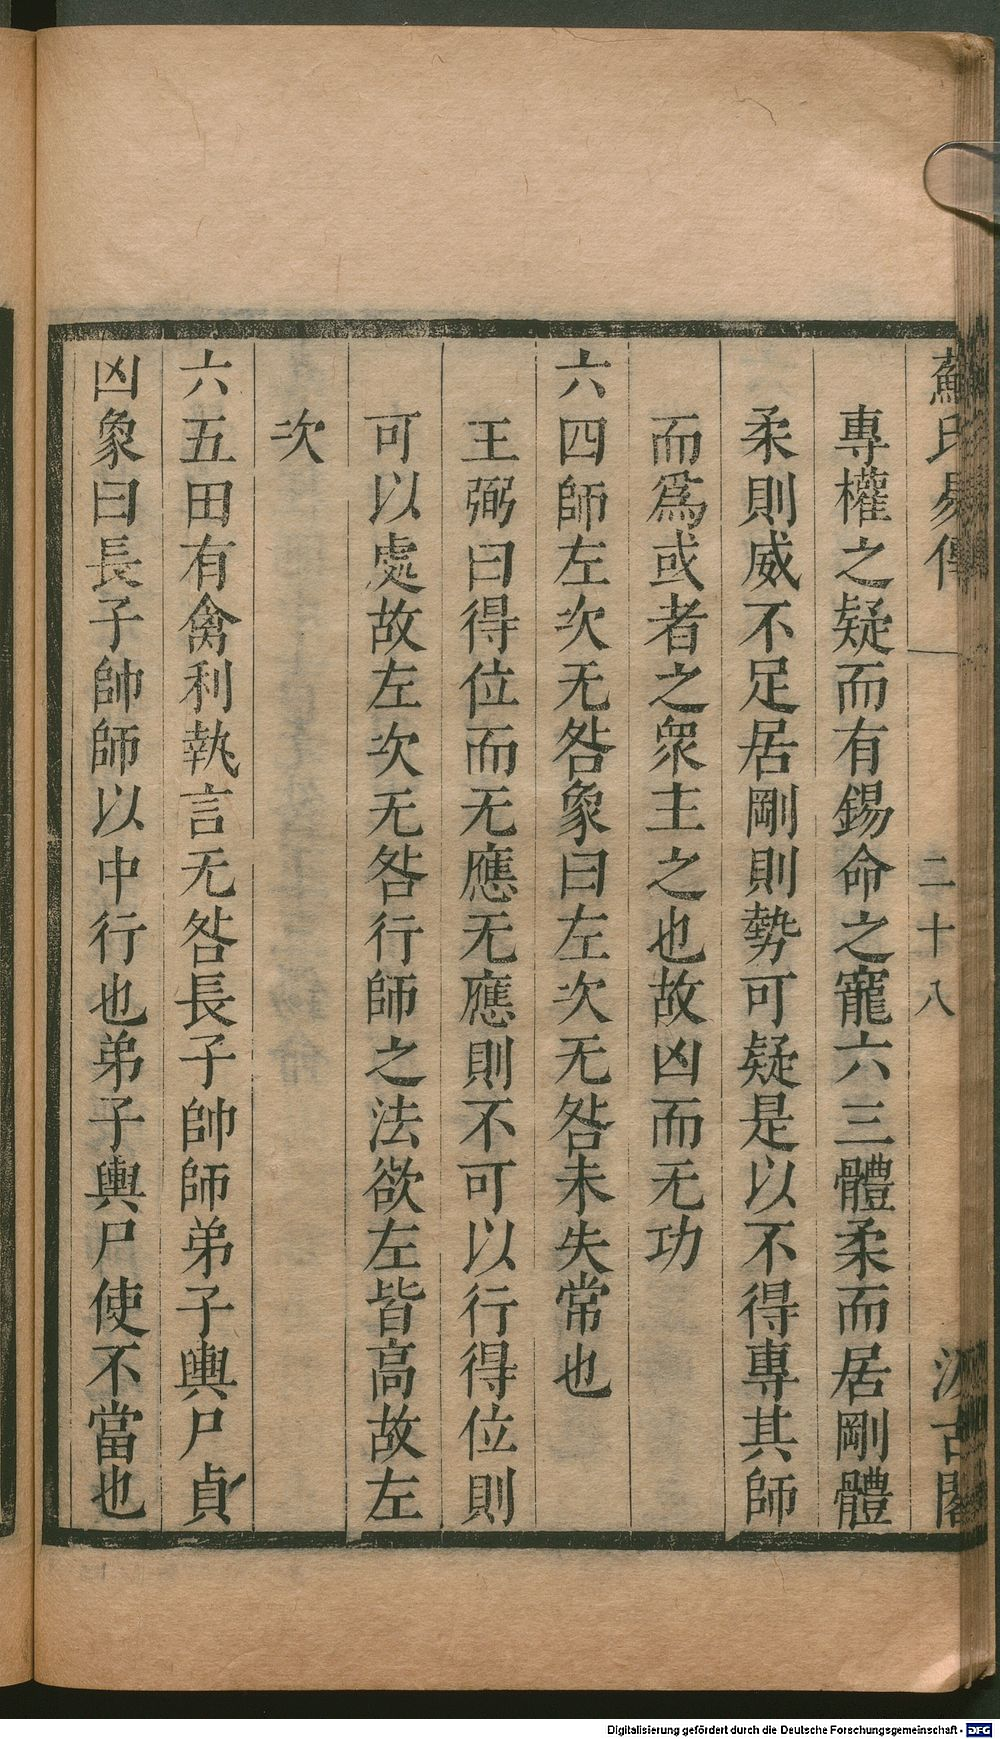 蘇氏易傳 二十八 汲古閣
專權之疑而有錫命之寵六三體柔而居剛體
柔則威不足居剛則勢可疑是以不得專其師
而爲或者之衆主之也故凶而无功
六四師左次无咎象曰左次无咎未失常也
王弼曰得位而无應无應則不可以行得位則
可以處故左次无咎行師之法欲左皆高故左
次
六五田有禽利執言无咎長子帥師弟子輿尸貞
凶象曰長子帥師以中行也弟子輿尸使不當也
Digitalisierung gefördert durch die Deutsche Forschungsgemeinschaft - DFG